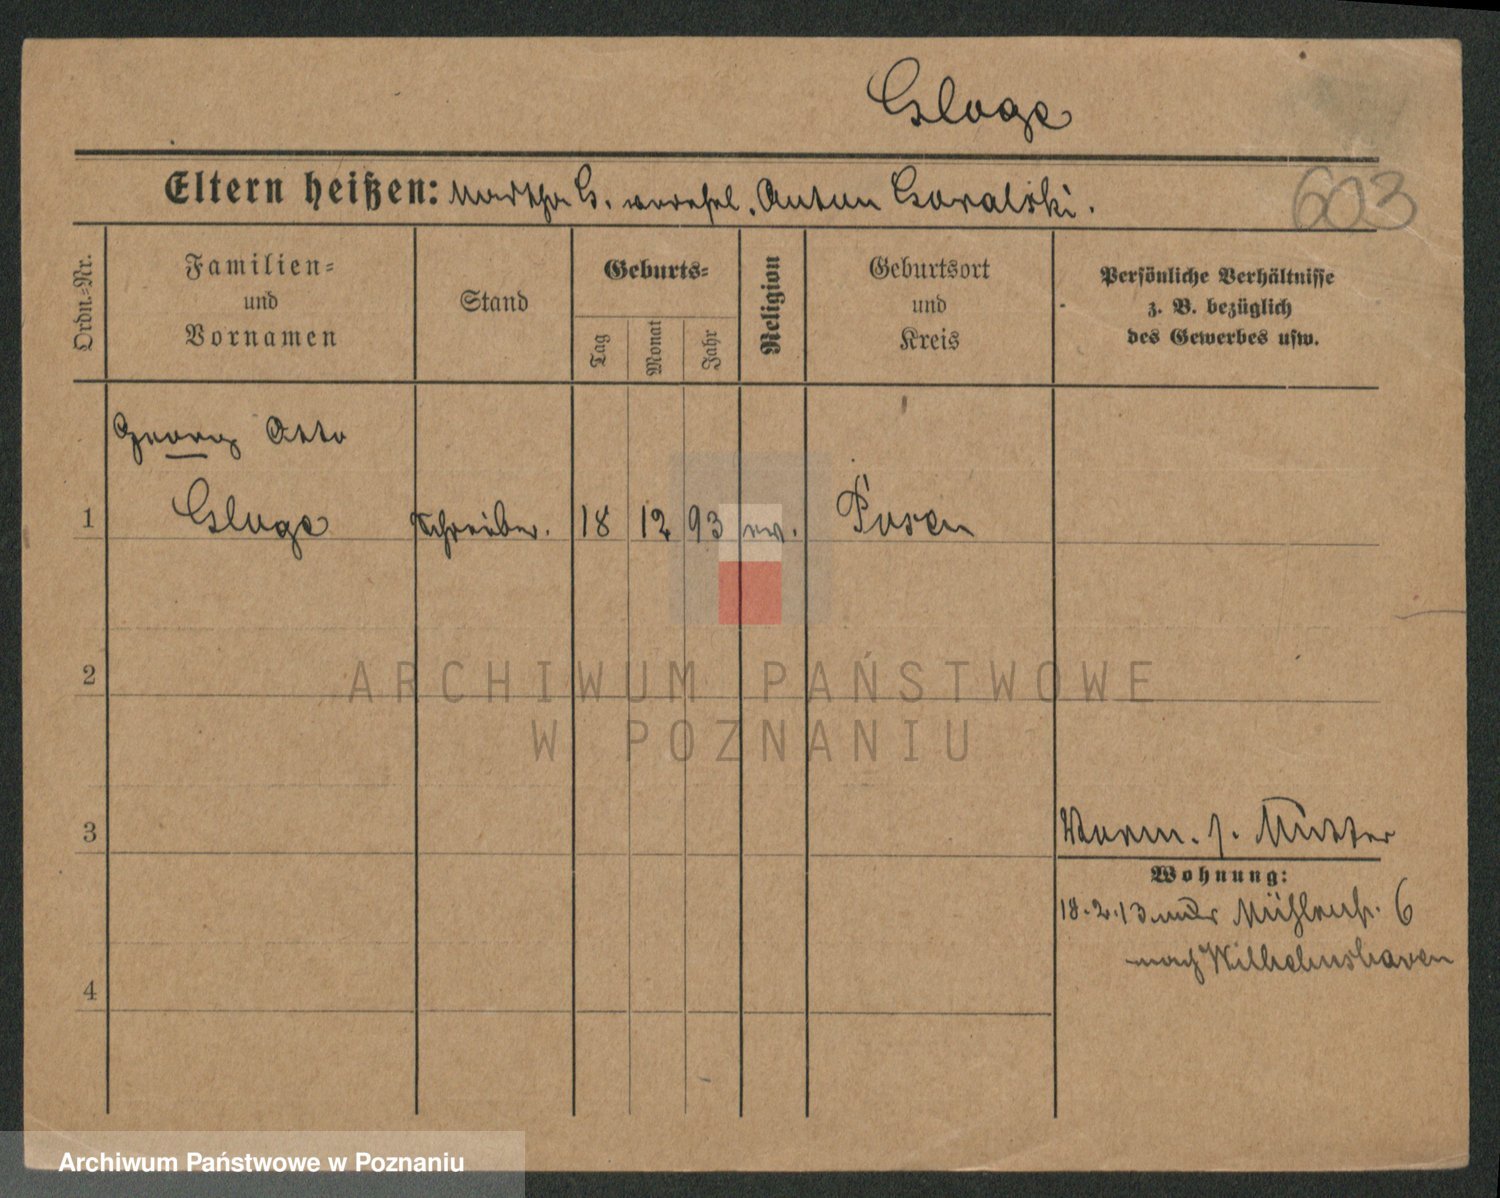 Gloge
Eltern heißen: Martha G. verehel. Anton Goralski.
603
Ordn.-Nr.
Familien-
und
Vornamen
Stand
Geburts-
Tag
Monat
Jahr
Religion
Geburtsort
und
Kreis
Persönliche Verhältnisse
z. B. bezüglich
des Gewerbes usw.
Georg Otto
1 Gloge Schreiber. 18 12 93 ev. Posen
2
ARCHIWUM PAŃSTWOWE
W POZNANIU
3
Vorm. s. Mutter
Wohnung:
18.2.13 Mühlenstr. 6
nach Wilhelmshaven
4
Archiwum Państwowe w Poznaniu